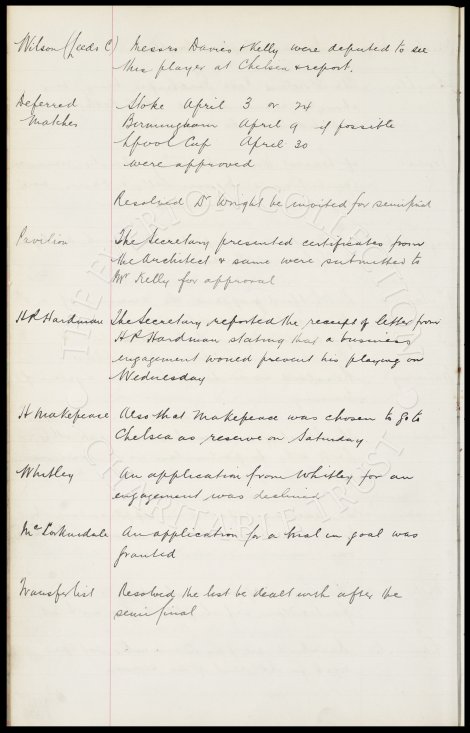 Wilson (Leeds C) Messrs Davies & Kelly were deputed to see
this player at Chelsea & report.
Deferred Stoke April 3 or 24
Matches Birmingham April 9 if possible
Lpool Cup April 30
were approved
Resolved Dr Wright be invited for semifinal
Pavilion The Secretary presented certificates from
the Architect & same were submitted to
Mr Kelly for approval
H P Hardman The Secretary reported the receipt of letter from
H P Hardman stating that a business
engagement would prevent his playing on
Wednesday
H Makepeace Also that Makepeace was chosen to go to
Chelsea as reserve on Saturday
Whitley An application from Whitley for an
engagement was declined
An application for a trial in goal was
granted
Transfer list Resolved the list be dealt with after the
semifinal
THE EVERTON COLLECTION
CHARITABLE TRUST